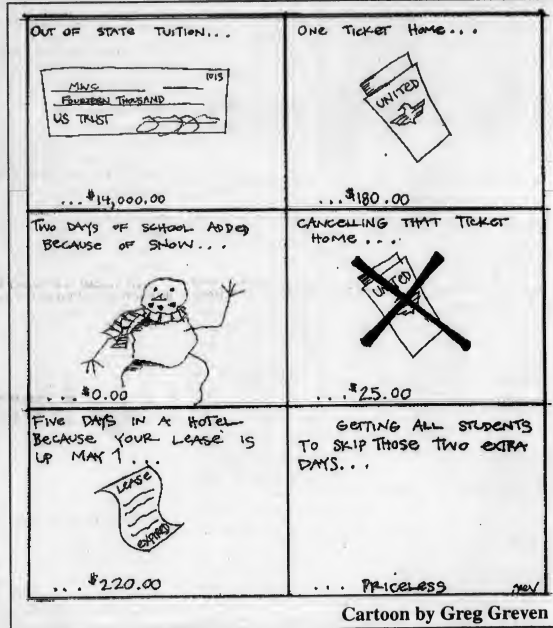 OUT OF STATE TUITION...
1013
MWC
FOURTEEN THOUSAND
US TRUST
...$14,000.00
ONE TICKET HOME...
UNITED
...$180.00
TWO DAYS OF SCHOOL ADDED
BECAUSE OF SNOW...
...$0.00
CANCELLING THAT TICKET
HOME...
UNITED
...$25.00
FIVE DAYS IN A HOTEL
BECAUSE YOUR LEASE IS
UP MAY 1...
LEASE
EXPIRED
...$220.00
GETTING ALL STUDENTS
TO SKIP THOSE TWO EXTRA
DAYS...
... PRICELESS
Cartoon by Greg Greven